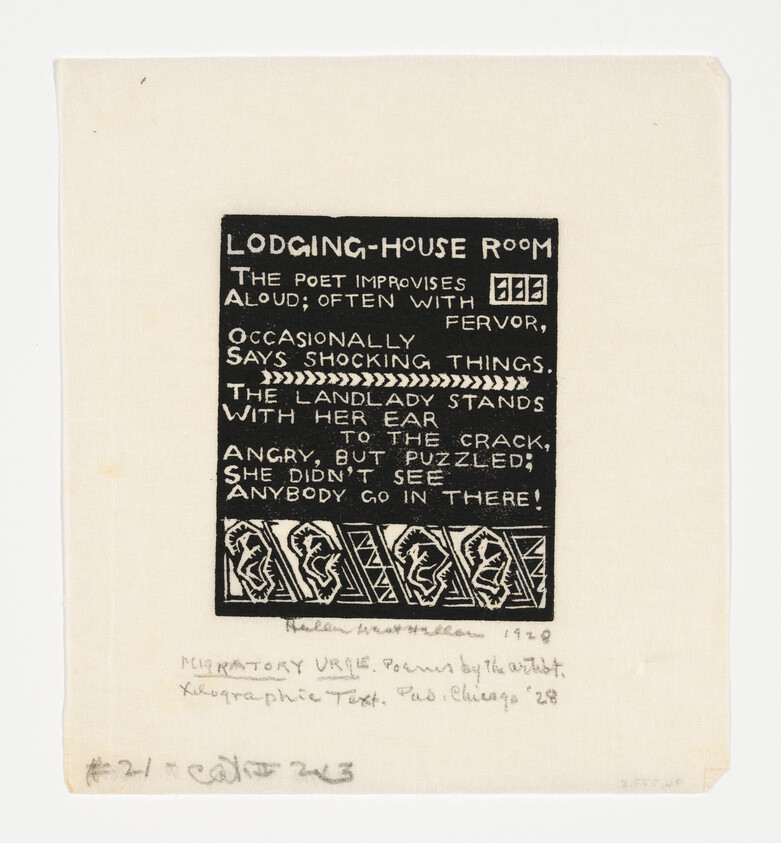 LODGING-HOUSE ROOM
THE POET IMPROVISES
ALOUD; OFTEN WITH
FERVOR,
OCCASIONALLY
SAYS SHOCKING THINGS.
THE LANDLADY STANDS
WITH HER EAR
TO THE CRACK,
ANGRY, BUT PUZZLED;
SHE DIDN'T SEE
ANYBODY GO IN THERE!
Hellen West Heller 1928
MIGRATORY URGE. Poems by the artist.
Xylographic Text. Pub. Chicago '28
#21 - cat II